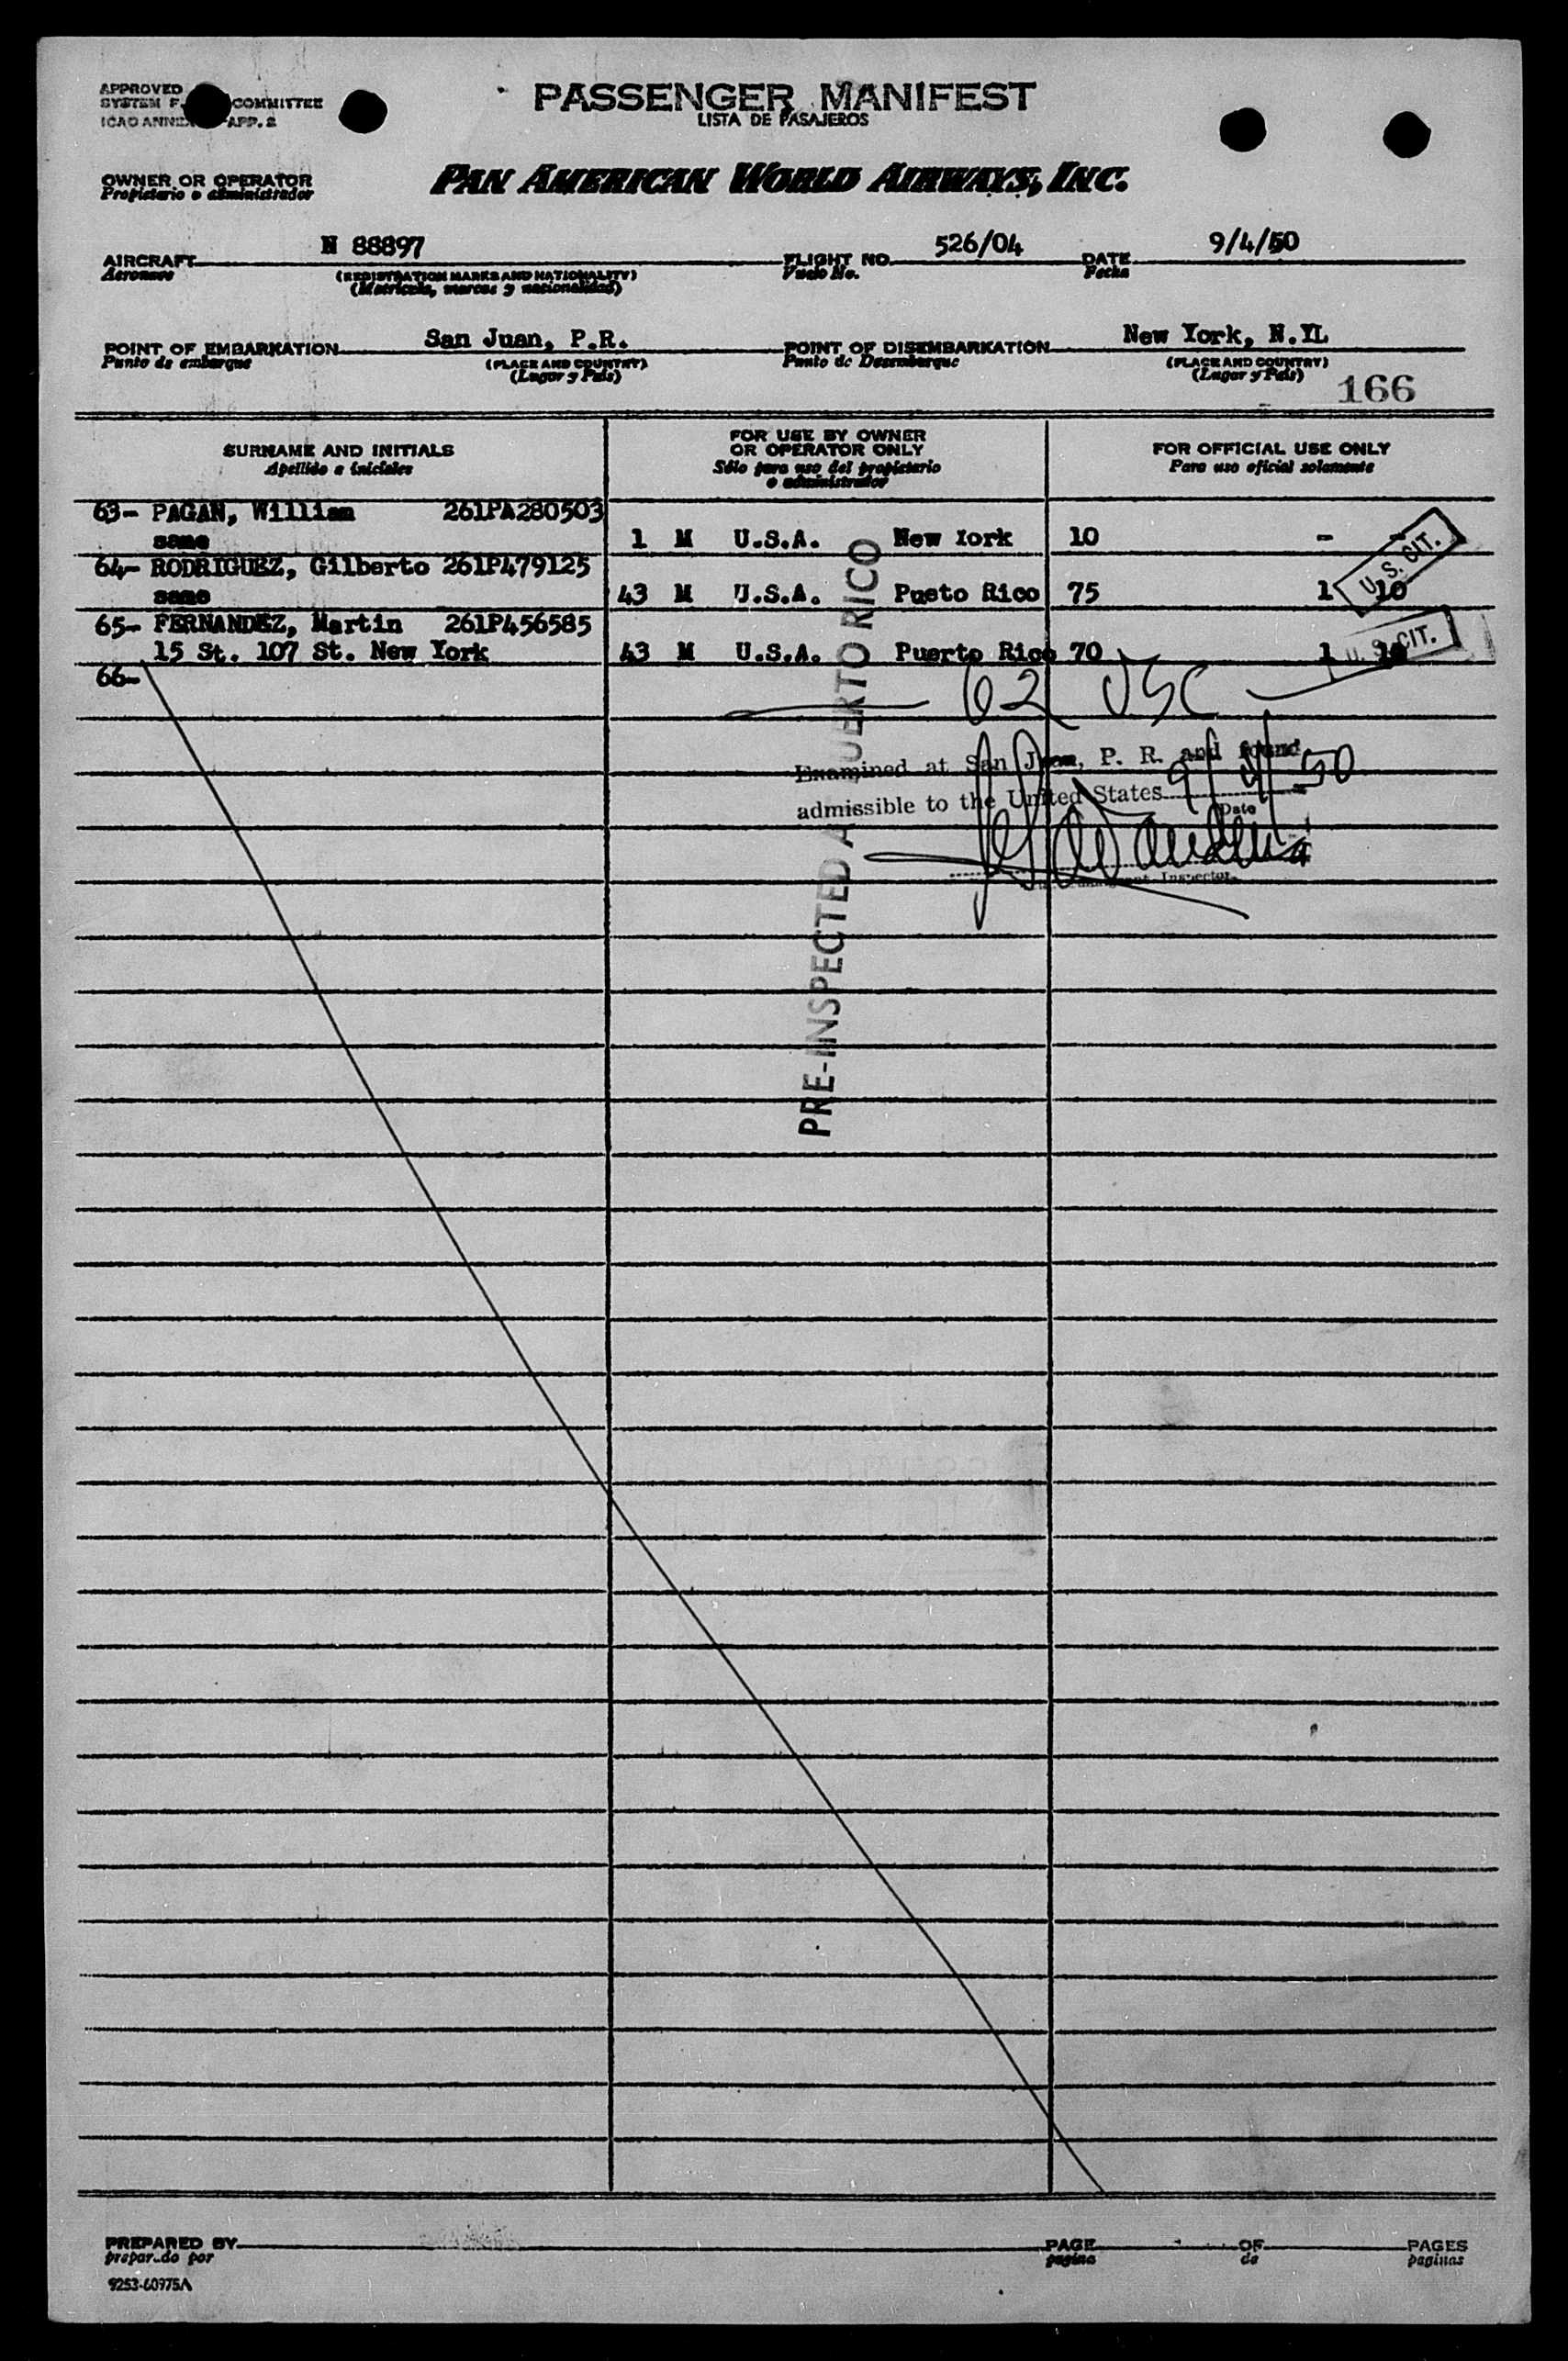 APPROVED
SYSTEM F. COMMITTEE
ICAO ANNEX APP. 2
PASSENGER MANIFEST
LISTA DE PASAJEROS
OWNER OR OPERATOR
Propietario o administrador
PAN AMERICAN WORLD AIRWAYS, INC.
AIRCRAFT N 88897 FLIGHT NO. 526/04 DATE 9/4/50
Aeronave (REGISTRATION MARKS AND NATIONALITY) Vuelo No. Fecha
(Matricula, marcas y nacionalidad)
POINT OF EMBARKATION San Juan, P.R. POINT OF DISEMBARKATION New York, N.YL
Punto de embarque (PLACE AND COUNTRY) Punto de Desembarque (PLACE AND COUNTRY)
(Lugar y País) (Lugar y País)
166
SURNAME AND INITIALS FOR USE BY OWNER OR OPERATOR ONLY FOR OFFICIAL USE ONLY
Apellido e iniciales Sólo para uso del propietario o administrador Para uso oficial solamente
63- PAGAN, William 261PA280503
same 1 M U.S.A. New York 10 - -
U. S. CIT.
64- RODRIGUEZ, Gilberto 261P479125
same 43 M U.S.A. Pueto Rico 75 1 10
65- FERNANDEZ, Martin 261P456585
15 St. 107 St. New York 43 M U.S.A. Puerto Rico 70 1 10
U. S. CIT.
66-
62 USC
Examined at San Juan, P. R. and found
admissible to the United States 9/4/50
Date
Inspector
PRE-INSPECTED A PUERTO RICO
PREPARED BY PAGE OF PAGES
preparado por pagina de paginas
9253-60975A